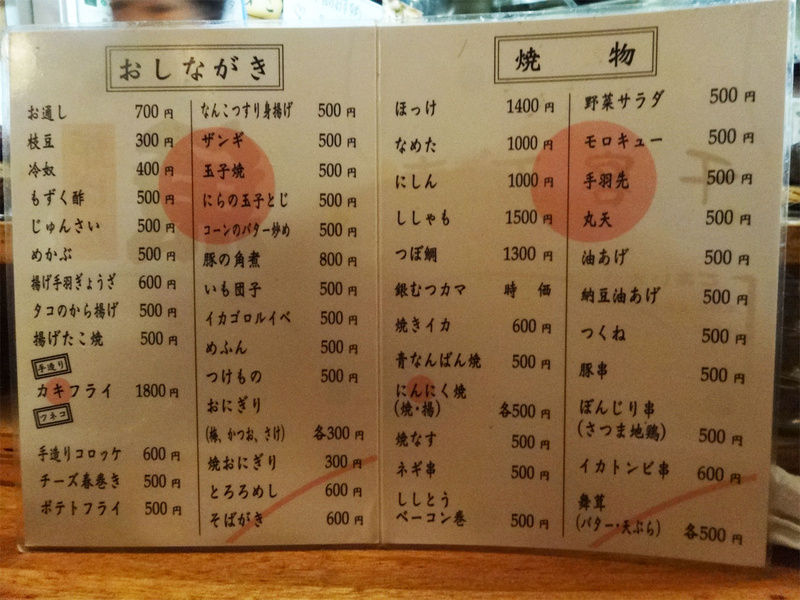 おしながき
お通し 700円
枝豆 300円
冷奴 400円
もずく酢 500円
じゅんさい 500円
めかぶ 500円
揚げ手羽ぎょうざ 600円
タコのから揚げ 500円
揚げたこ焼 500円
手造り
カキフライ 1800円
フネコ
手造りコロッケ 600円
チーズ春巻き 500円
ポテトフライ 500円
なんこつすり身揚げ 500円
ザンギ 500円
玉子焼 500円
にらの玉子とじ 500円
コーンのバター炒め 500円
豚の角煮 800円
いも団子 500円
イカゴロルイベ 500円
めふん 500円
つけもの 500円
おにぎり
(梅、かつお、さけ) 各300円
焼おにぎり 300円
とろろめし 600円
そばがき 600円
焼物
ほっけ 1400円
なめた 1000円
にしん 1000円
ししゃも 1500円
つぼ鯛 1300円
銀むつカマ 時価
焼きイカ 600円
青なんばん焼 500円
にんにく焼
(焼・揚) 各500円
焼なす 500円
ネギ串 500円
ししとう
ベーコン巻 500円
野菜サラダ 500円
モロキュー 500円
手羽先 500円
丸天 500円
油あげ 500円
納豆油あげ 500円
つくね 500円
豚串 500円
ぼんじり串
(さつま地鶏) 500円
イカトンビ串 600円
舞茸
(バター・天ぷら) 各500円